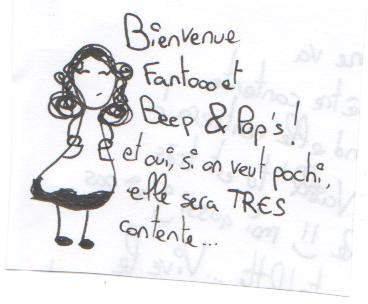 Bienvenue
Fantooo et
Beep & Pop's !
et oui, si on veut pochi,
elle sera TRES
contente...